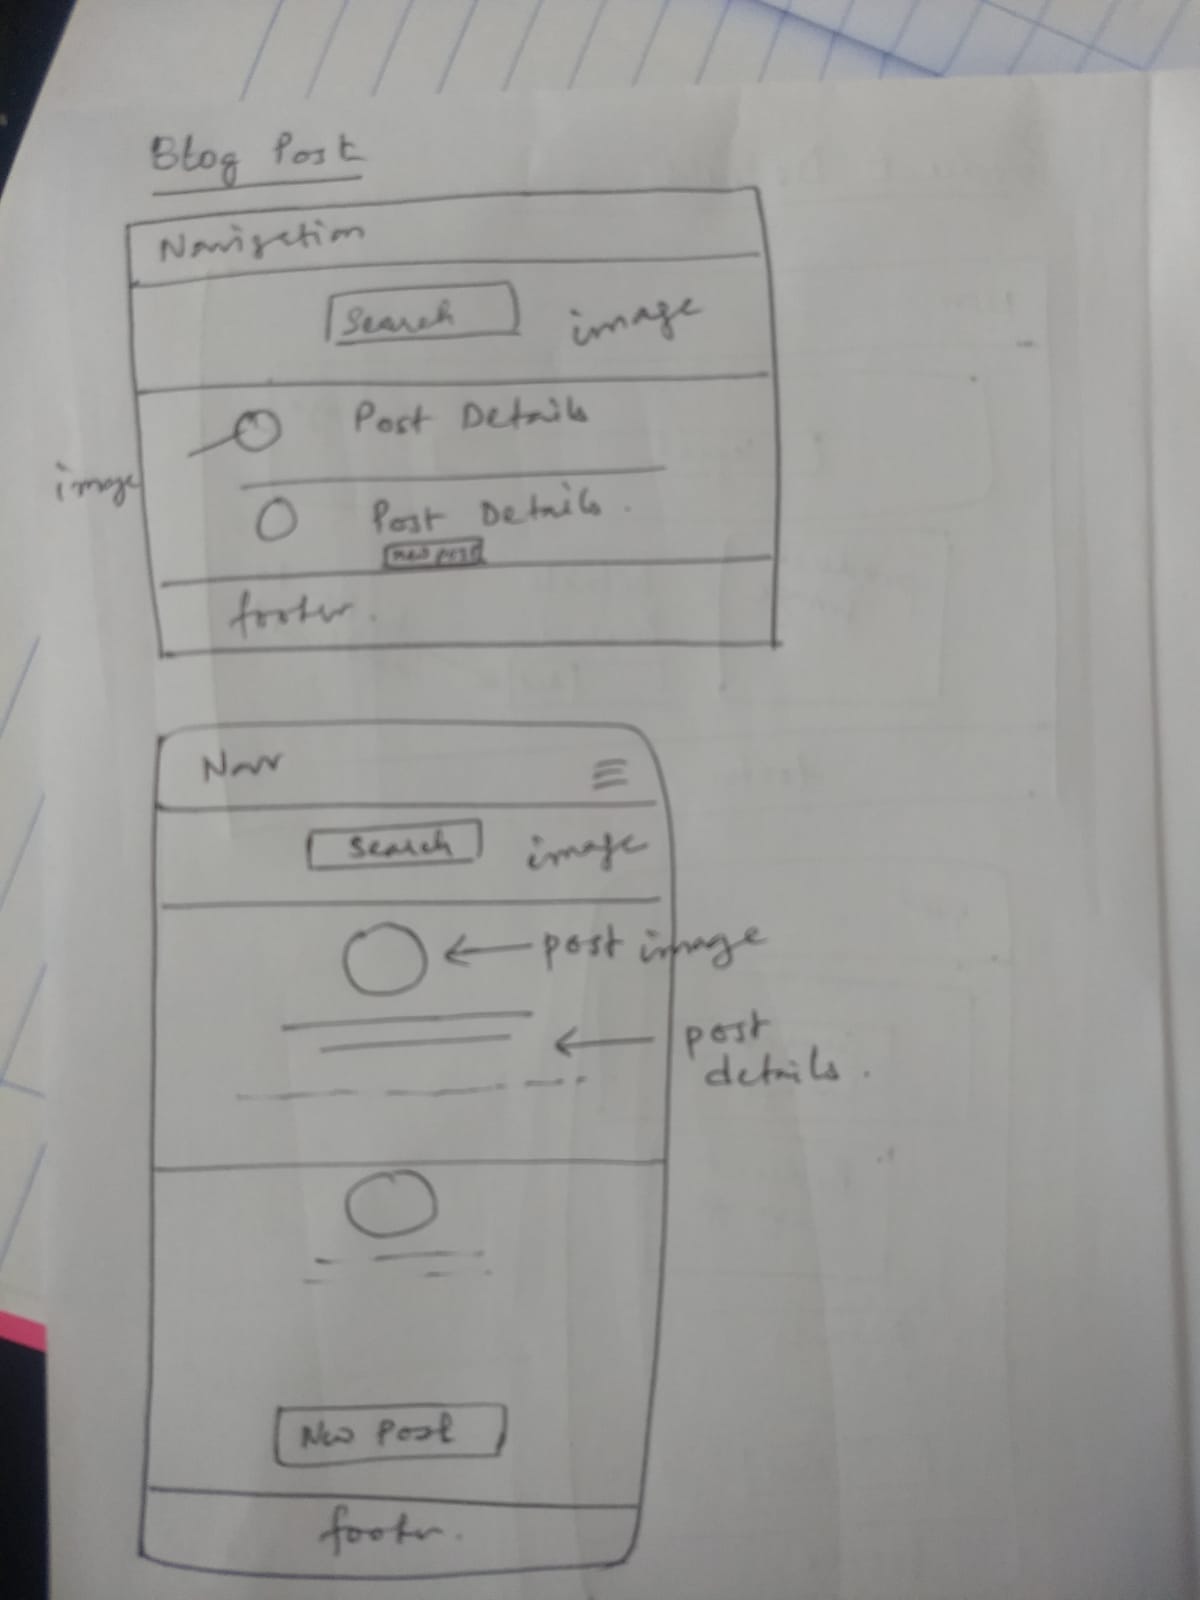 Blog Post
Navigation
Search image
Post Details
image
Post Details.
new post
footer.
Nav
Search image
post image
post
details.
New Post
footer.